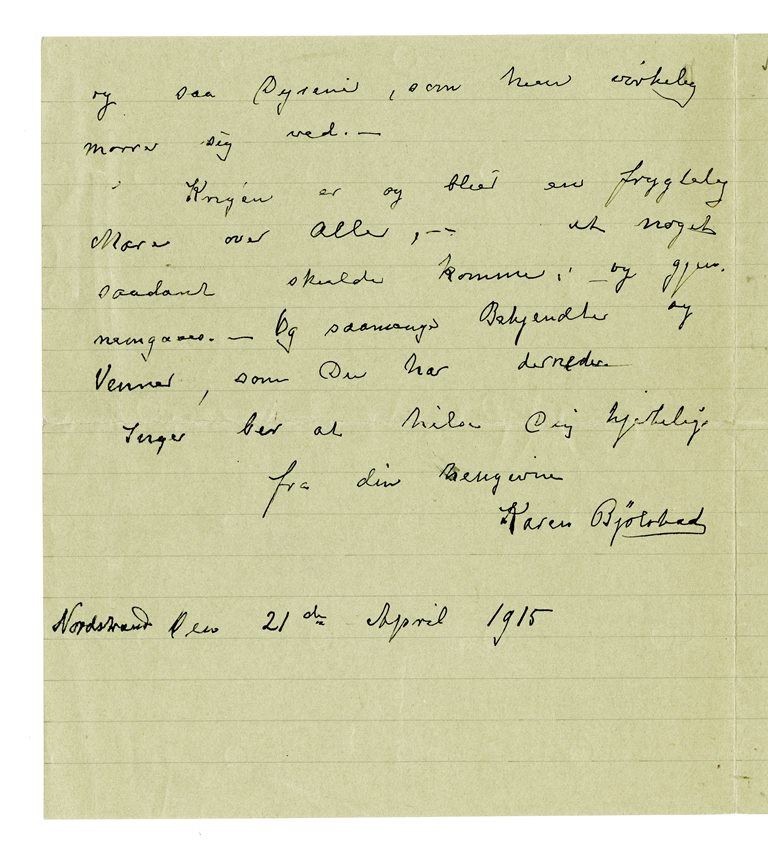 og saa Dyrene, som hun virkelig
morrer sig ved. —
Krigen er og bliver en frygtelig
Mare over Alle, — at noget
saadant skulde komme, — og gjen-
nemgaaes. — Og saamange Bekjendte og
Venner, som Du har dernede.
Inger ber at hilse Dig hjerteligt
fra din hengivne
Karen Bjölstad
Nordstrand Den 21de April 1915